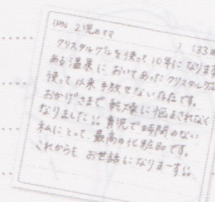 2児のママ
クリスタルゲルを使って10年になります
ある温泉においてあったクリスタルゲル
使って以来手放せない存在です。
おかげさまで乾燥に悩まされなく
なりました!! 育児で時間のない
私にとって、最高の化粧品です。
これからもお世話になりまーす!!